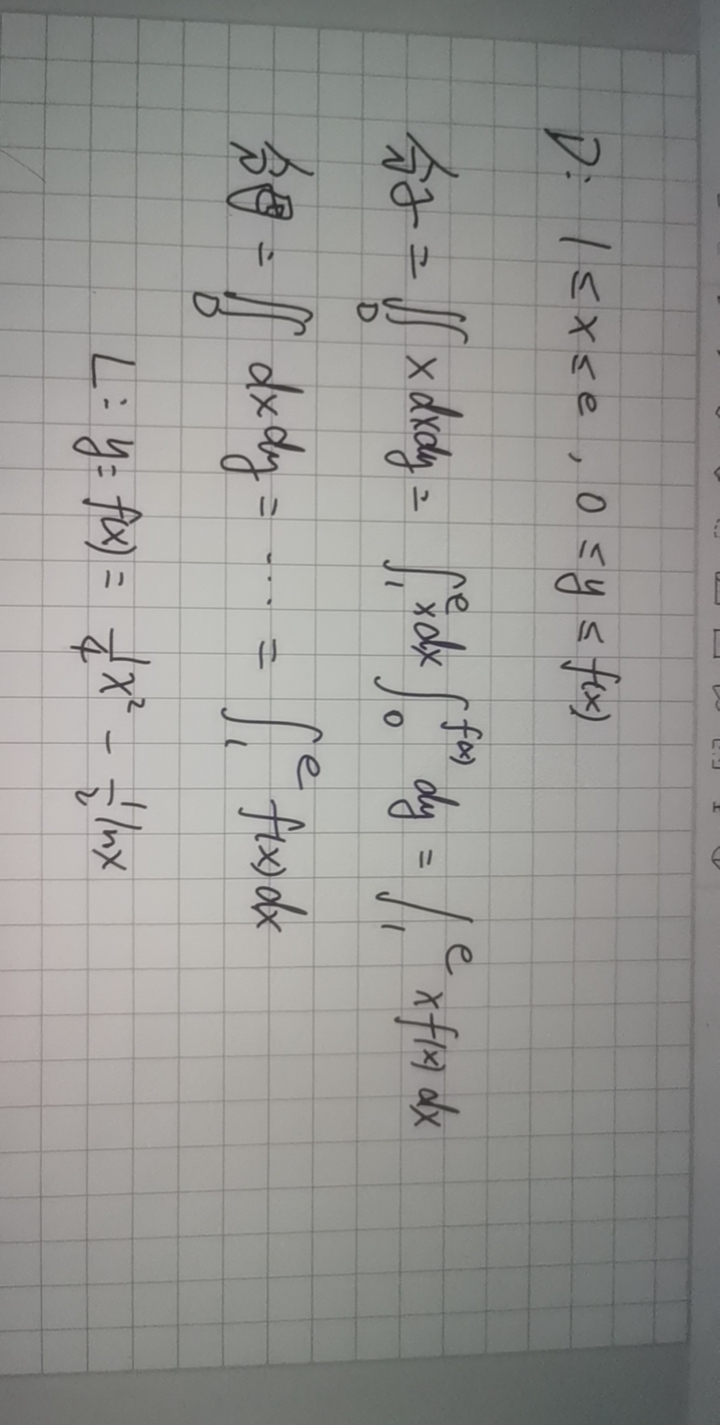 D: 1 ≤ x ≤ e , 0 ≤ y ≤ f(x)
分子 = ∬_D x dxdy = ∫_1^e x dx ∫_0^{f(x)} dy = ∫_1^e x f(x) dx
分母 = ∬_D dxdy = ... = ∫_1^e f(x) dx
L: y = f(x) = 1/4 x² - 1/2 lnx